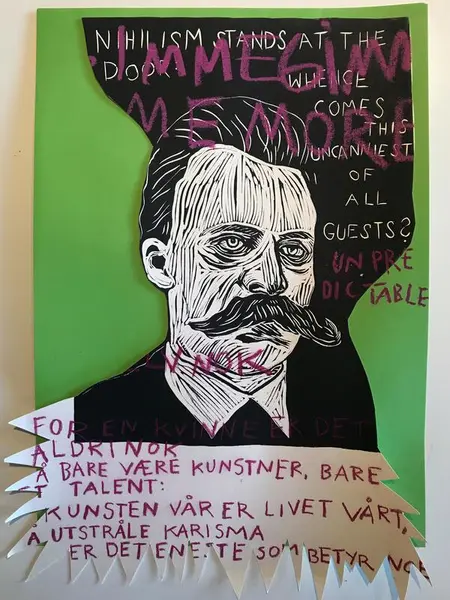 NIHILISM STANDS AT THE
DOOR
WHENCE
COMES
THIS
UNCANNIEST
OF
ALL
GUESTS?
GIMMEGIM
ME MORE
UN PRE
DICTABLE
NOK
FOR EN KVINNE ER DET
ALDRI NOK
Å BARE VÆRE KUNSTNER, BARE
TALENT:
KUNSTEN VÅR ER LIVET VÅRT,
Å UTSTRÅLE KARISMA
ER DET ENESTE SOM BETYR NOE